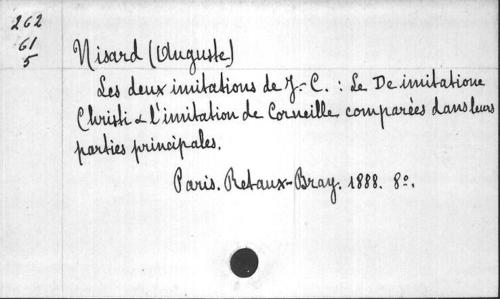 262
61
5
Nisard (Auguste)
Les deux imitations de J.-C. : Le De imitatione
Christi & l'imitation de Corneille comparées dans leurs
parties principales.
Paris. Retaux-Bray. 1888. 8º.